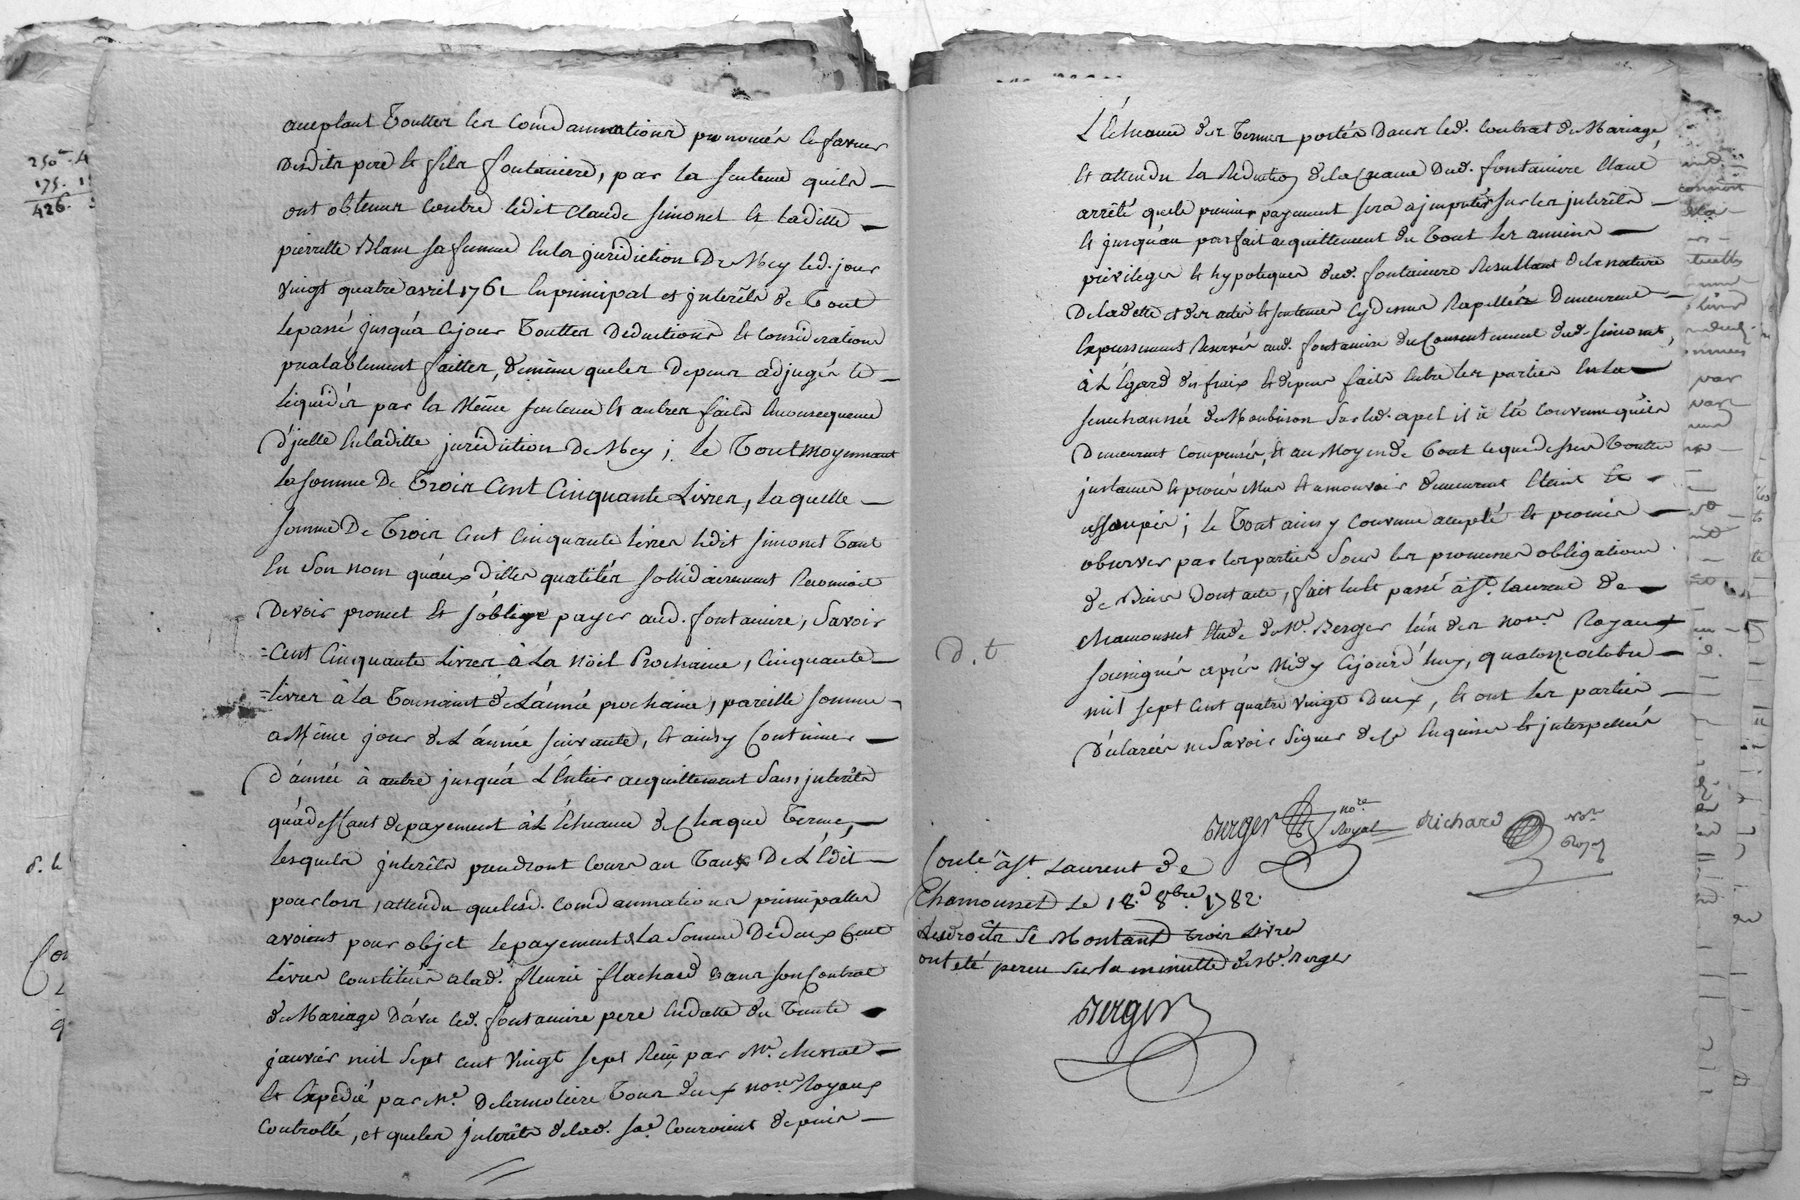 acceptant Toutter les Condamnations prononcées en faveur
Desdits pere et fils fontaniere, par la sentence quils
ont obtenue contre ledit Claude simonet et laditte
pierrette Blanc sa femme en la juridiction De Mey led. jour
vingt quatre avril 1761 en principal et interêts de tout
le passé jusqu'a ce jour Toutter Deductions et considerations
prealablement faitter, de même que les Depens adjugés et
liquidés par la Même sentence et autres faits en consequence
d'jcelle en laditte juridiction De Mey ; le Tout moyennant
la somme De Trois Cent Cinquante Livres, laquelle
somme De Trois Cent Cinquante livres ledit simonet Tant
En Son nom qu'aux dittes qualités solidairement Reconnoit
Devoir promet et s'oblige payer aud. fontaniere, savoir
=Cent Cinquante livres à la Nöel Prochaine, Cinquante
=livres à la Toussaint de L'année prochaine, pareille somme
a Même jour de L'année suivante, et ainsy Continuer
D'année à autre jusqu'a L'Entier acquittement sans jnterêts
qu'a deffaut de payement à L'Echeance de Chaque Terme,
lesquels jnterêts prendront Cours au Taux De L'Edit
pour lors, attendu que lesd. Condamnations principalles
avoient pour objet le payement de la Somme De deux Cent
livres Constituées a lad. fleurie flachard dans son Contrat
de Mariage d'avec led. fontaniere pere en datte du Trente
janvier mil sept cent vingt sept Reçu par Me.
et Expedié par Me. Delamoliere Tous deux nores. Royaux
Controllé, et que les jnterêts de lad. so.e couroient depuis
L'Echeance des Termes portés Dans led. Contrat de Mariage,
et attendu la Reduction de la Creance Dud. fontaniere Etant
arrêté que le premier payement sera a jmputer sur les jnterêts
et jusqu'au parfait acquittement du Tout les anciens
privileges et hypoteques dud. fontaniere Resultant de la nature
De la dette et des actes et sentences cy dessus Rapellés Demeurent
Expressement Reservés aud. fontaniere du Consentement dud. simonet,
à L'Egard des fraix et depens faits entre les parties en la
senechaussée de Montbrison sur led. apel il à été convenu qu'ils
Demeurent Compensés, et au Moyen de Tout ce que dessus Toutte
jnstance et procés Mus et a mouvoir demeurent Eteint et
assoupis ; le Tout ainsy convenu accepté et promis
observer par les parties Sous les promesses obligations
de Biens dont acte, fait lu et passé à St. Laurent de
Chamousset Etude de Me. Berger l'un des nores. Royaux
soussignés aprés Midy ce jourd'huy, quatorze octobre
mil sept cent quatre vingt deux, et ont les parties
Déclarées ne Savoir Signer de ce Enquises et interpellées
D. t
Berger nore Royal Richard nore Royal
Contlé. à St. Laurent de
Chamousset Le 18.d 8bre. 1782.
Les droits Se Montant Trois Livres
ont été percu sur la minutte de Me. Berger
Berger
250. 4
175. 1
426.